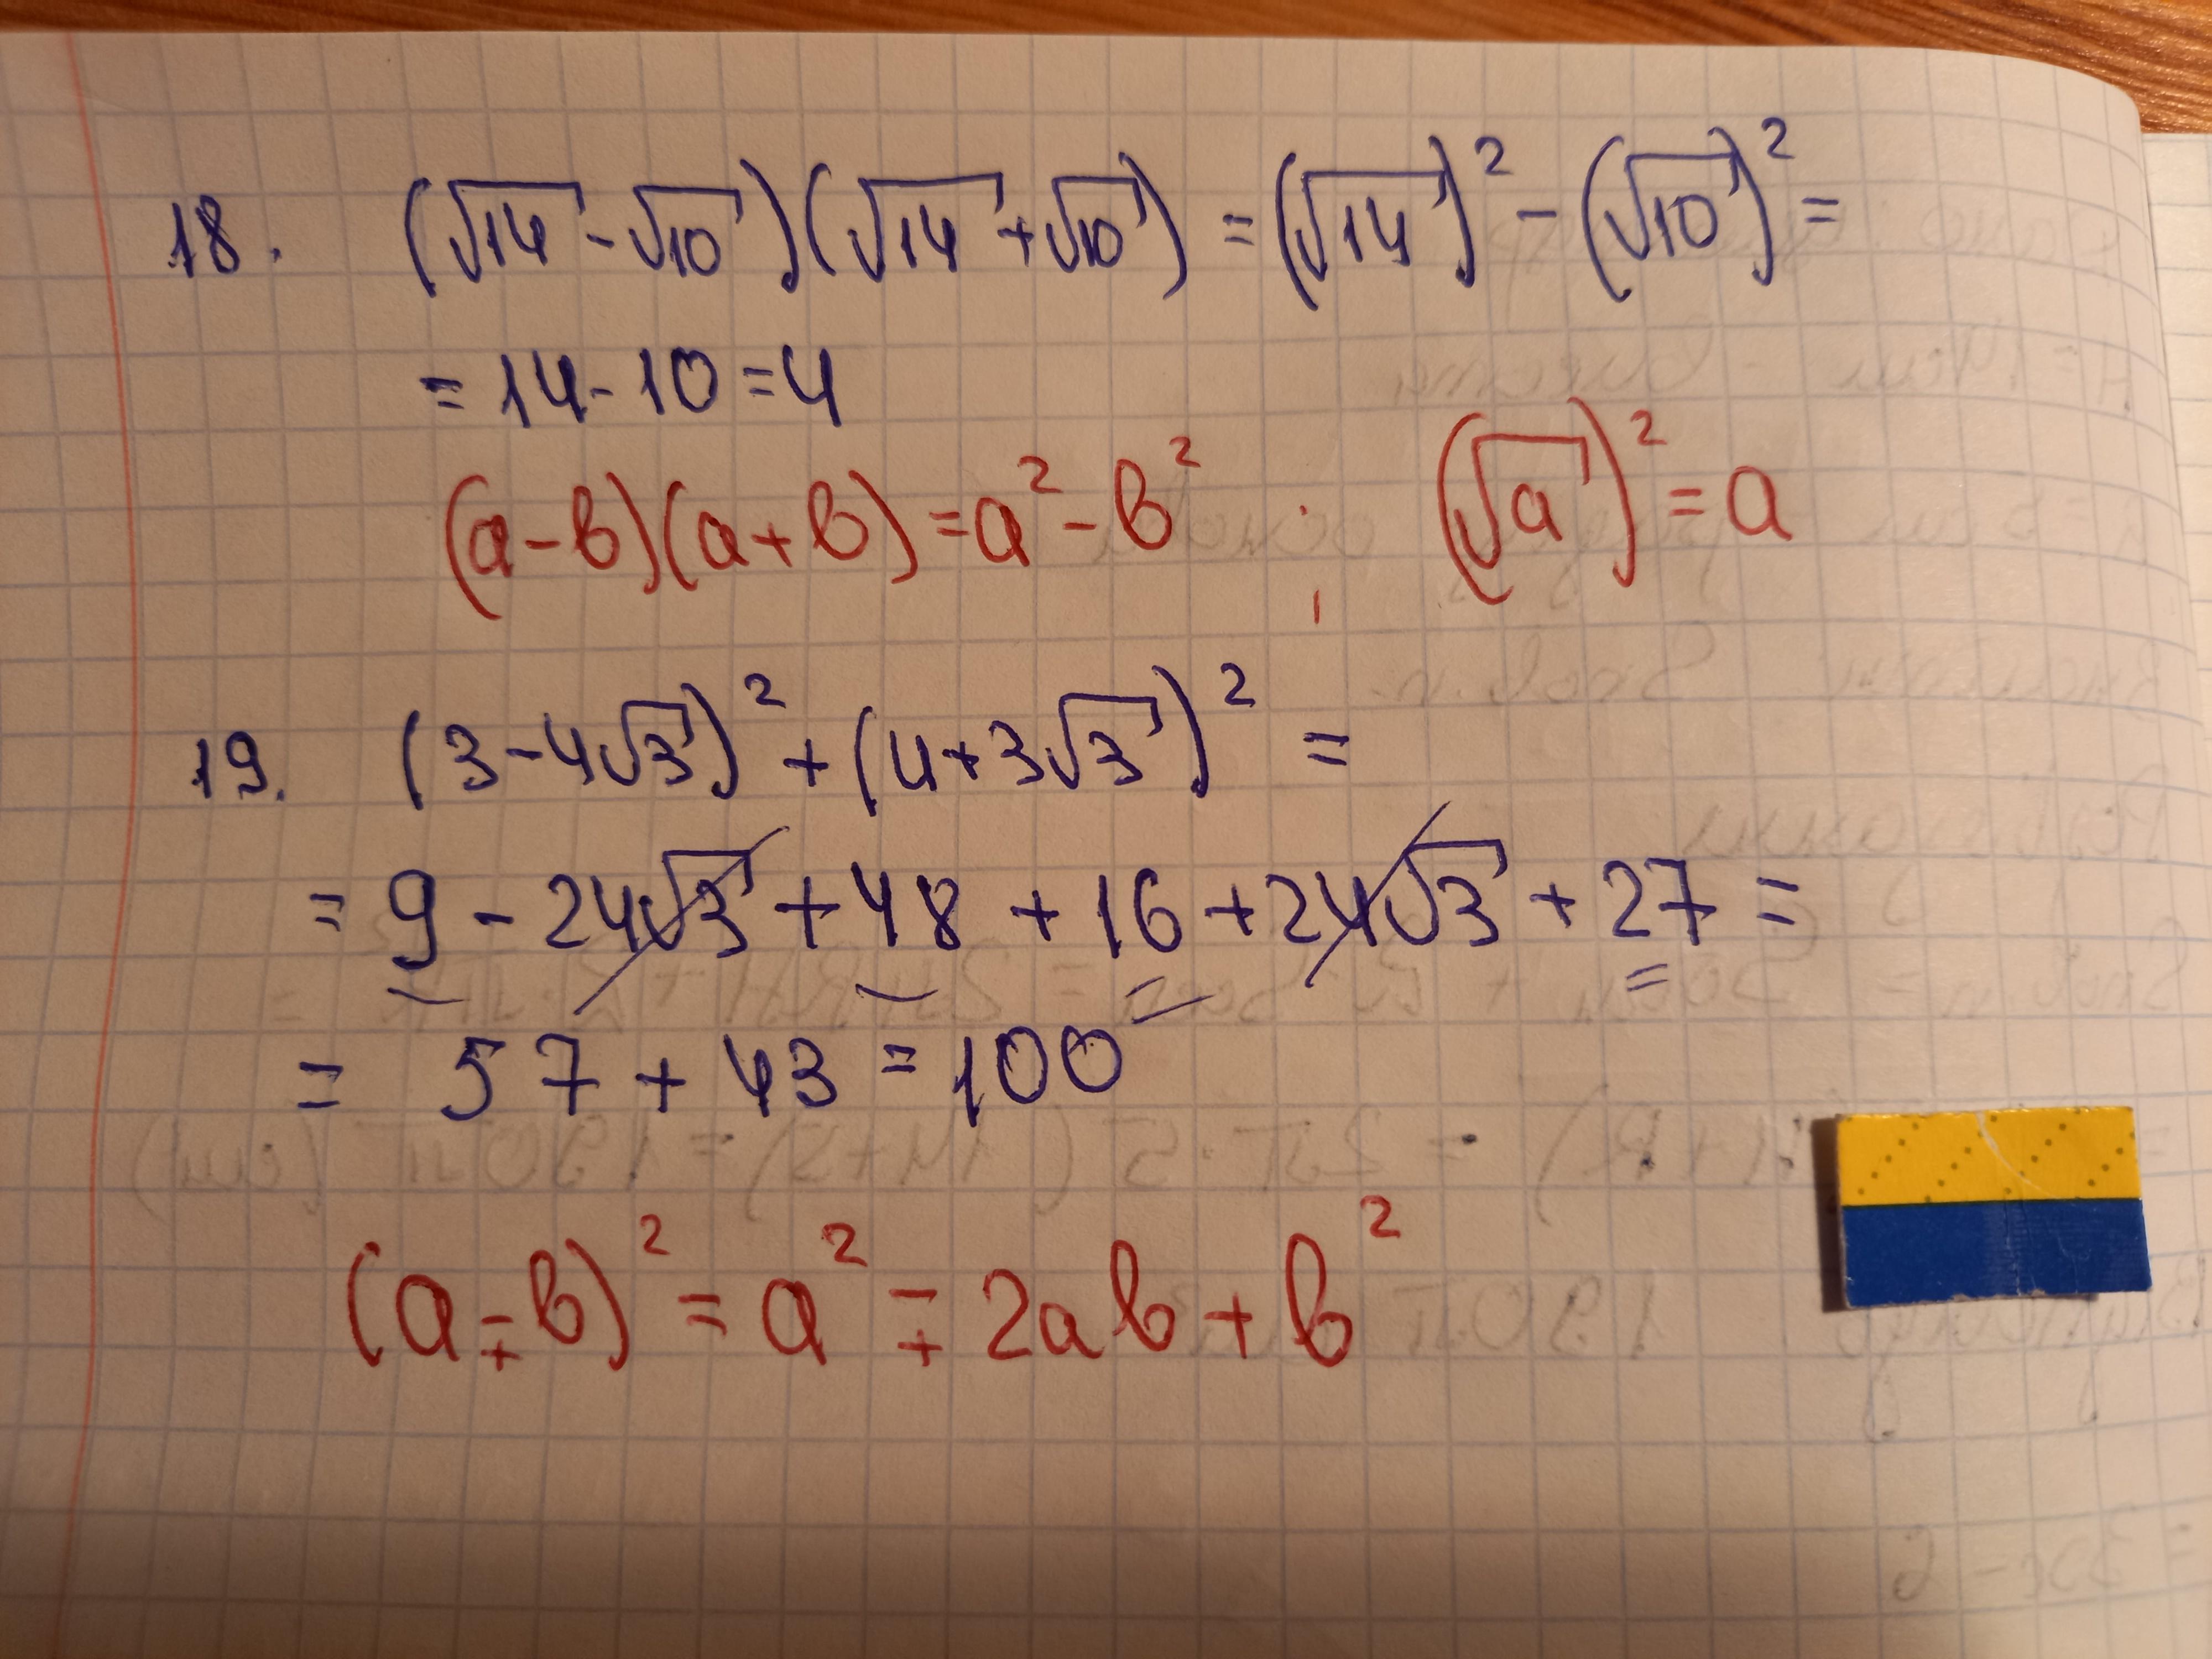 18. (√14 - √10)(√14 + √10) = (√14)² - (√10)² =
= 14 - 10 = 4
(a - b)(a + b) = a² - b² ; (√a)² = a
19. (3 - 4√3)² + (4 + 3√3)² =
= 9 - 24√3 + 48 + 16 + 24√3 + 27 =
= 57 + 43 = 100
(a ∓ b)² = a² ∓ 2ab + b²